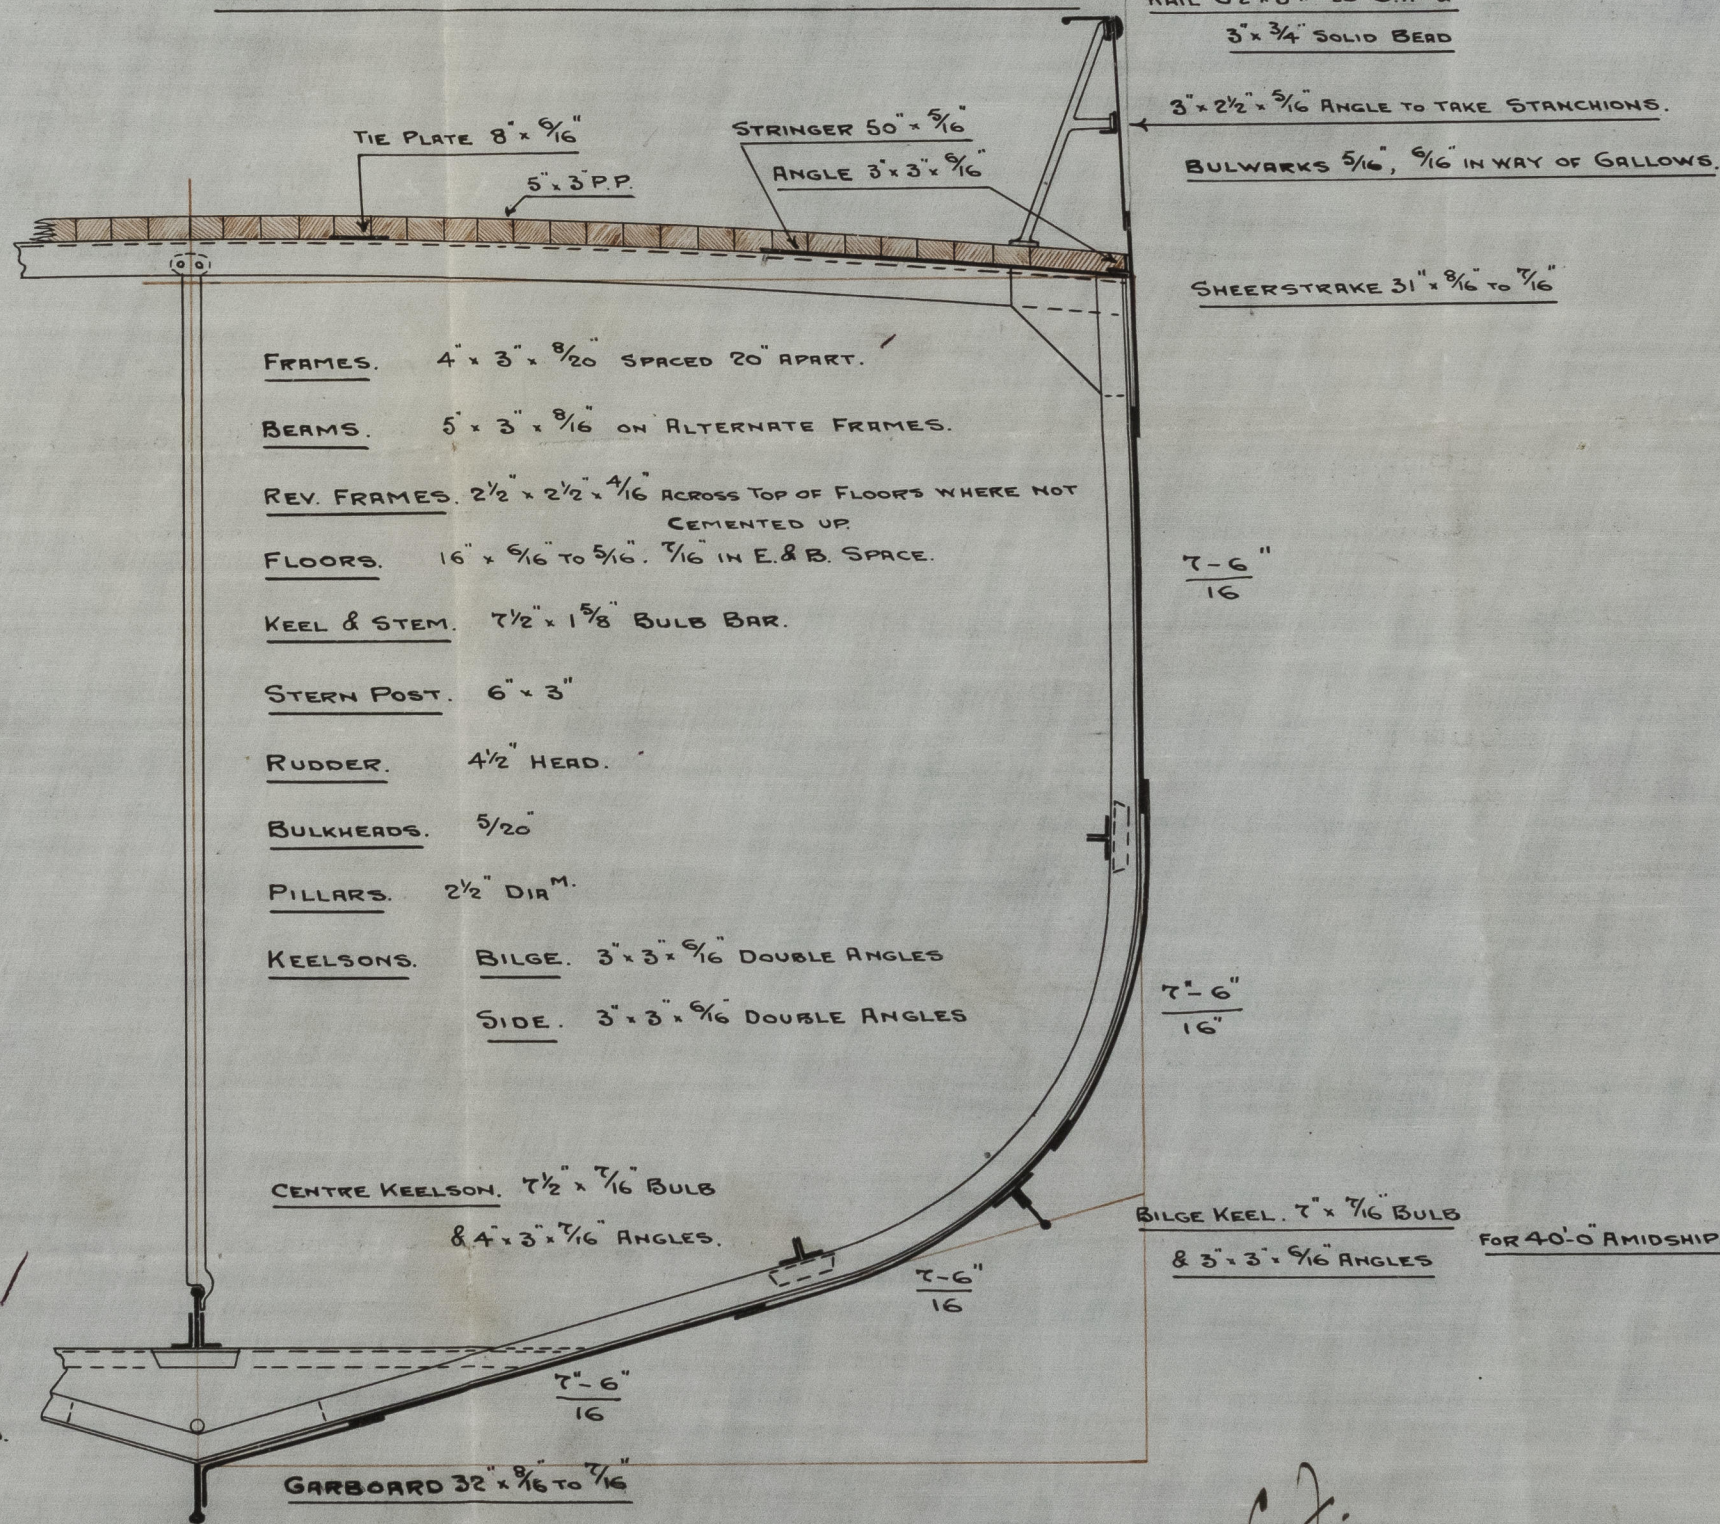 3" x 3/4" SOLID BEAD
3" x 2 1/2" x 5/16" ANGLE TO TAKE STANCHIONS.
BULWARKS 5/16", 6/16" IN WAY OF GALLOWS.
TIE PLATE 8" x 6/16"
5" x 3" P.P.
STRINGER 50" x 5/16"
ANGLE 3" x 3" x 6/16"
SHEERSTRAKE 31" x 8/16" TO 7/16"
FRAMES. 4" x 3" x 8/20" SPACED 20" APART.
BEAMS. 5" x 3" x 8/16" ON ALTERNATE FRAMES.
REV. FRAMES. 2 1/2" x 2 1/2" x 4/16" ACROSS TOP OF FLOORS WHERE NOT
CEMENTED UP.
FLOORS. 16" x 6/16" TO 5/16". 7/16" IN E. & B. SPACE.
7-6"
16
KEEL & STEM. 7 1/2" x 1 5/8" BULB BAR.
STERN POST. 6" x 3"
RUDDER. 4 1/2" HEAD.
BULKHEADS. 5/20"
PILLARS. 2 1/2" DIAM.
KEELSONS. BILGE. 3" x 3" x 6/16" DOUBLE ANGLES
SIDE. 3" x 3" x 6/16" DOUBLE ANGLES
7"-6"
16"
CENTRE KEELSON. 7 1/2" x 7/16" BULB
& 4" x 3" x 7/16" ANGLES.
BILGE KEEL. 7" x 7/16" BULB
& 3" x 3" x 6/16" ANGLES
FOR 40'-0" AMIDSHIP
7-6"
16
7"-6"
16
GARBOARD 32" x 8/16" TO 7/16"